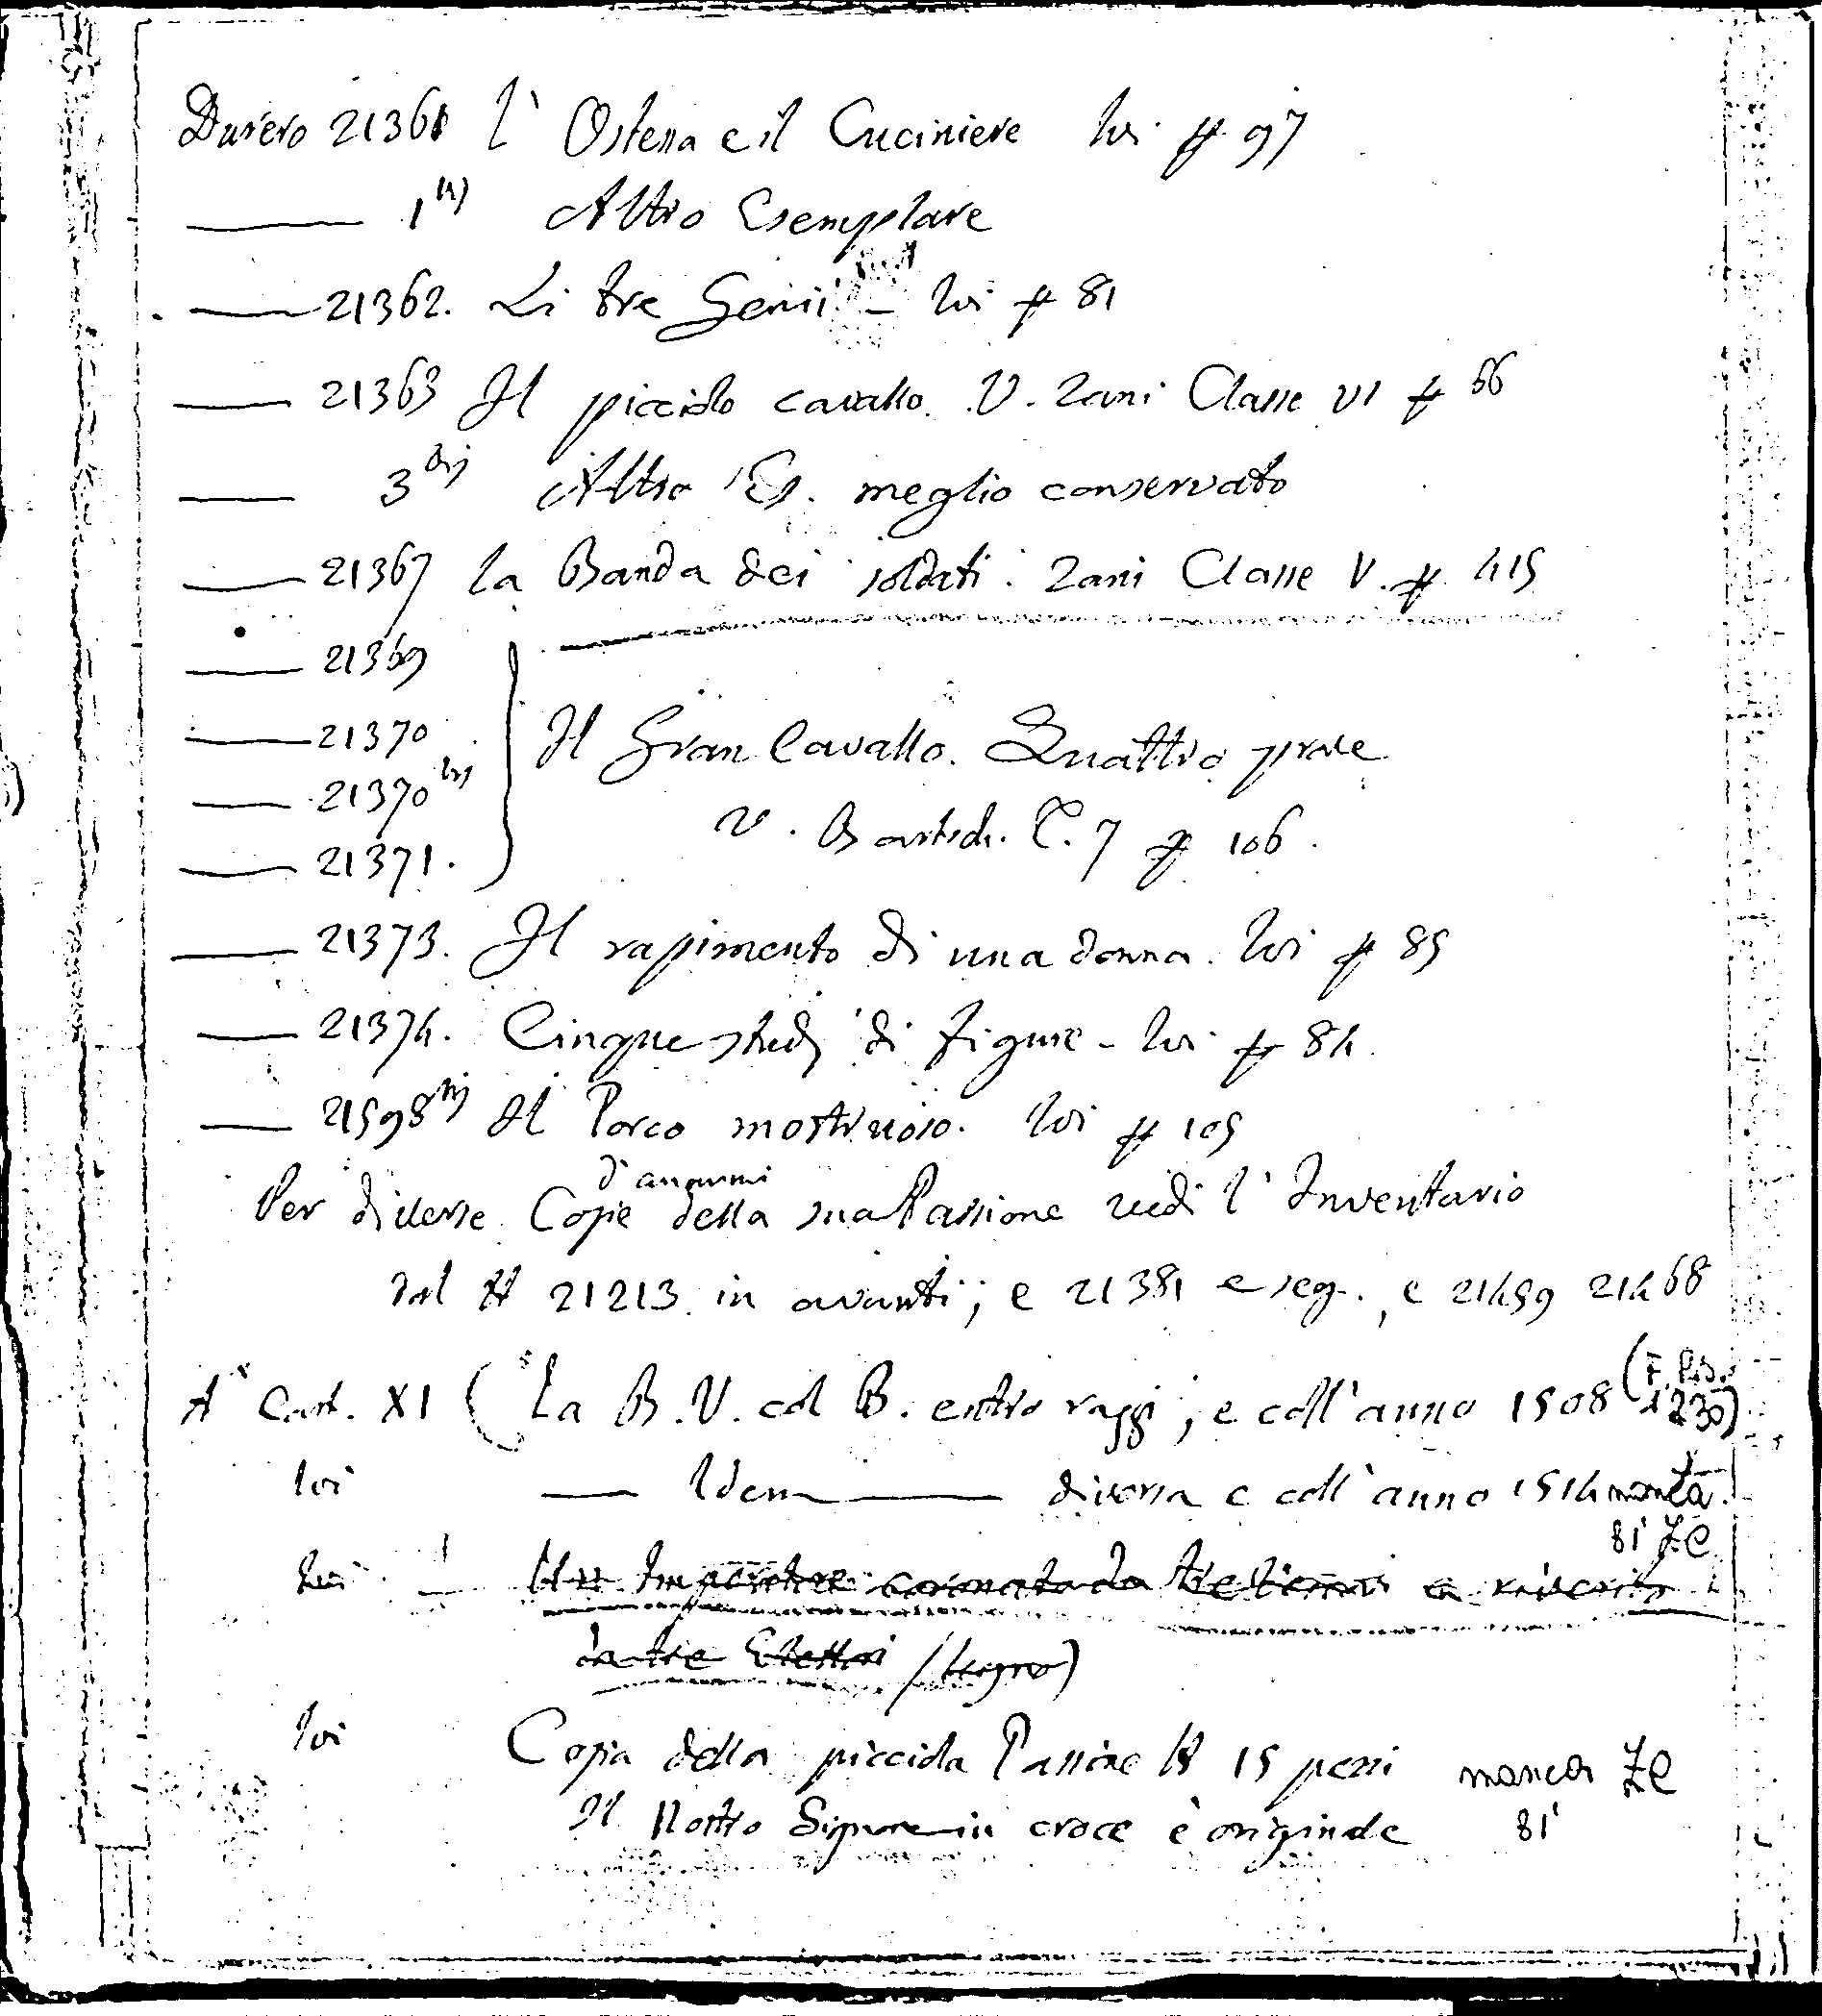 Durero 21361 L' Ostessa e il Cuciniere Ivi # 97
—— 1 bis Altro Esemplare
—— 21362. Li tre Genii - Ivi # 81
—— 21363 Il picciolo cavallo. V. Zani Classe VI # 66
—— 3 bis Altro Es. meglio conservato
—— 21367 La Banda dei soldati. Zani Classe V. # 415
—— 21369
—— 21370 Il Gran Cavallo. Quattro prove
—— 21370 bis
V. Bartsch. C. 7 # 106.
—— 21371.
—— 21373. Il rapimento di una donna. Ivi # 89
—— 21374. Cinque studj di figure - Ivi # 84.
—— 21598 bis Il Porco mostruoso. Ivi # 105
d'anonimi
Per diverse Copie della sua Passione vedi l'Inventario
dal # 21213 in avanti; e 21381 e seg., e 21459 21468
A Cart. XI ( La B. V. col B. entro raggi, e coll'anno 1508 (F. P.
1230)
Ivi —— Idem —— diversa e coll'anno 1514 manca
81 Ze
Ivi — Un Imperatore coronato da tre e riverito
da tre Elettori (legno)
Ivi Copia della picciola Passione # 15 pezzi manca Ze
Il Nostro Signore in croce è originale 81